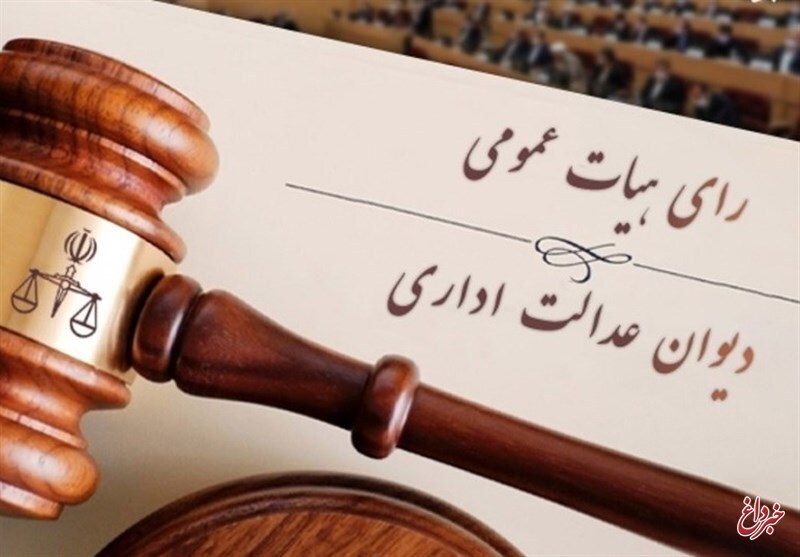 رای هیات عمومی
دیوان عدالت اداری
خبرداغ